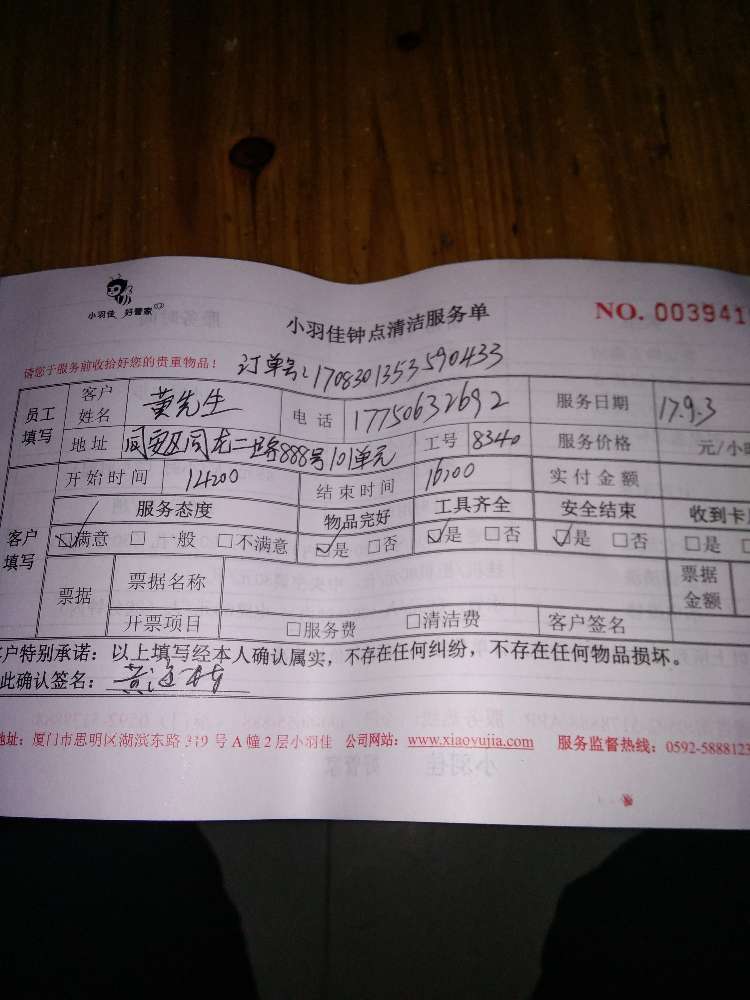 小羽佳 好管家
小羽佳钟点清洁服务单
NO. 003941
请您于服务前收拾好您的贵重物品！
订单号:1708301353590433
员工填写 客户姓名 黄先生 电话 17750632692 服务日期 17.9.3
地址 同安区同龙二路888号101单元 工号 8340 服务价格 元/小
开始时间 14:00 结束时间 16:00 实付金额
客户填写 服务态度 物品完好 工具齐全 安全结束 收到卡
☑满意 □一般 □不满意 ☑是 □否 ☑是 □否 ☑是 □否 □是
票据 票据名称 票据金额
开票项目 □服务费 □清洁费 客户签名
户特别承诺：以上填写经本人确认属实，不存在任何纠纷，不存在任何物品损坏。
此确认签名：黄
地址：厦门市思明区湖滨东路319号A幢2层小羽佳 公司网站：www.xiaoyujia.com 服务监督热线：0592-5888123